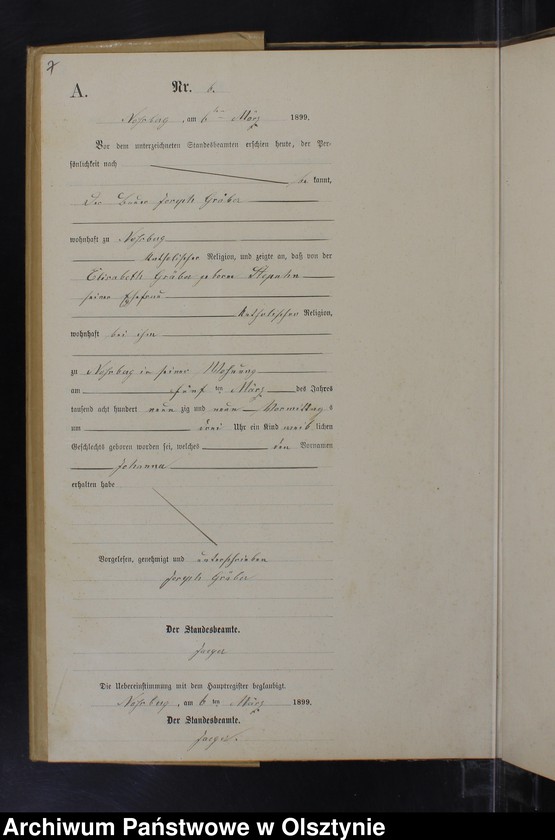 7
A.
Nr. 6.
Nossberg, am 6ten März 1899.
Vor dem unterzeichneten Standesbeamten erschien heute, der Per-
sönlichkeit nach
be kannt,
der Bauer Joseph Gräber
wohnhaft zu Nossberg
katholischer Religion, und zeigte an, daß von der
Elisabeth Gräber geborene
seiner Ehefrau
katholischer Religion,
wohnhaft bei ihm
zu Nossberg in seiner Wohnung
am fünf ten März des Jahres
tausend acht hundert neun zig und neun Vormittags
um drei Uhr ein Kind weib lichen
Geschlechts geboren worden sei, welches den Vornamen
Johanna
erhalten habe
Vorgelesen, genehmigt und unterschrieben
Joseph Gräber
Der Standesbeamte.
Jaeger
Die Uebereinstimmung mit dem Hauptregister beglaubigt.
Nossberg, am 6 ten März 1899.
Der Standesbeamte.
Jaeger.
Archiwum Państwowe w Olsztynie